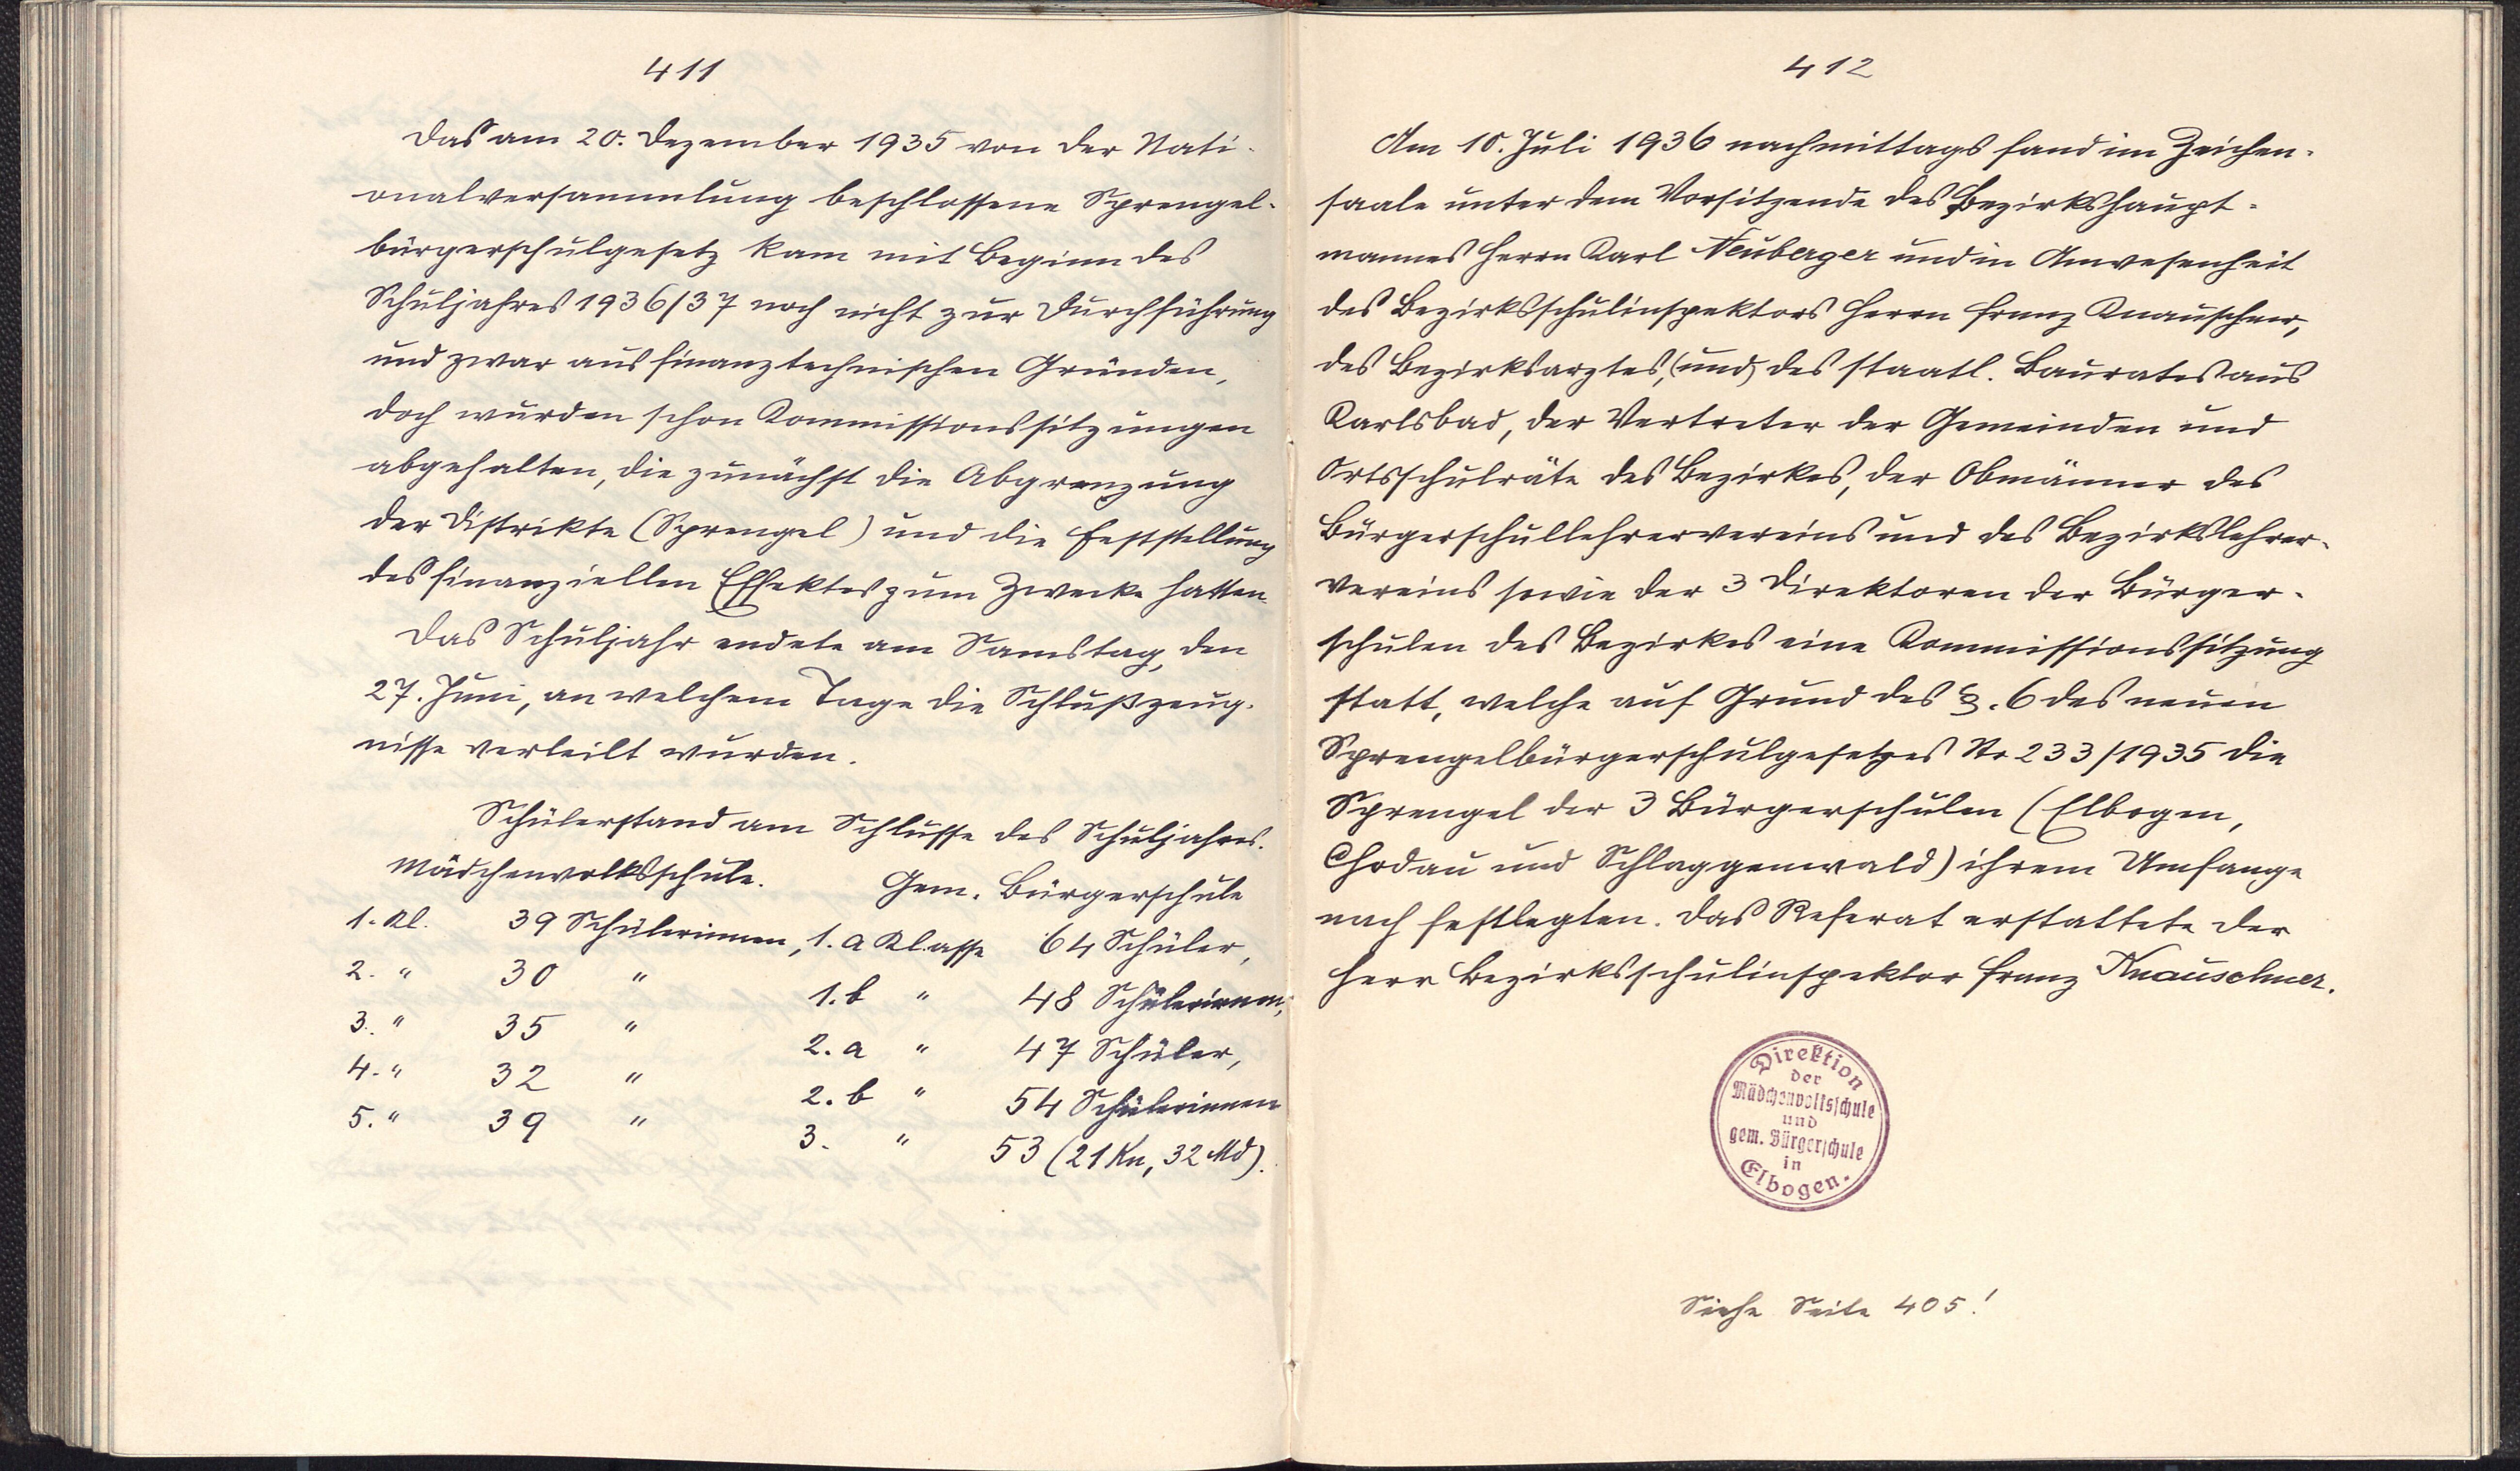 411
Das am 20. Dezember 1935 von der Nati-
onalversammlung beschlossene Sprengel-
bürgerschulgesetz kam mit Beginn des
Schuljahres 1936/37 noch nicht zur Durchführung
und zwar aus finanztechnischen Gründen,
doch wurden schon Kommissionssitzungen
abgehalten, die zunächst die Abgrenzung
der Distrikte (Sprengel) und die Feststellung
des finanziellen Effektes zum Zwecke hatten.
Das Schuljahr endete am Samstag, den
27. Juni, an welchem Tage die Schlußzeug-
nisse verteilt wurden.
Schülerstand am Schlusse des Schuljahres.
Mädchenvolksschule. Gem. Bürgerschule
1. Kl. 39 Schülerinnen, 1. a Klasse 64 Schüler,
2. " 30 " 1. b " 48 Schülerinnen,
3. " 35 " 2. a " 47 Schüler,
4. " 32 " 2. b " 54 Schülerinnen
5. " 39 " 3. " 53 (21 Kn, 32 Md).
412
Am 10. Juli 1936 nachmittags fand im Zeichen-
saale unter dem Vorsitzende des Bezirkshaupt-
mannes Herrn Karl Neuberger und in Anwesenheit
des Bezirksschulinspektors Herrn Franz Knauschner,
des Bezirksarztes, (und) des staatl. Baurates aus
Karlsbad, der Vertreter der Gemeinden und
Ortsschulräte des Bezirkes, der Obmänner des
Bürgerschullehrervereins und des Bezirkslehrer-
vereins sowie der 3 Direktoren der Bürger-
schulen des Bezirkes eine Kommissionssitzung
statt, welche auf Grund des §. 6 des neuen
Sprengelbürgerschulgesetzes Nr 233/1935 die
Sprengel der 3 Bürgerschulen (Elbogen,
Chodau und Schlaggenwald) ihrem Umfange
nach festlegten. Das Referat erstattete der
Herr Bezirksschulinspektor Franz Knauschner.
Direktion
der
Mädchenvolksschule
und
gem. Bürgerschule
in
Elbogen.
Siehe Seite 405!